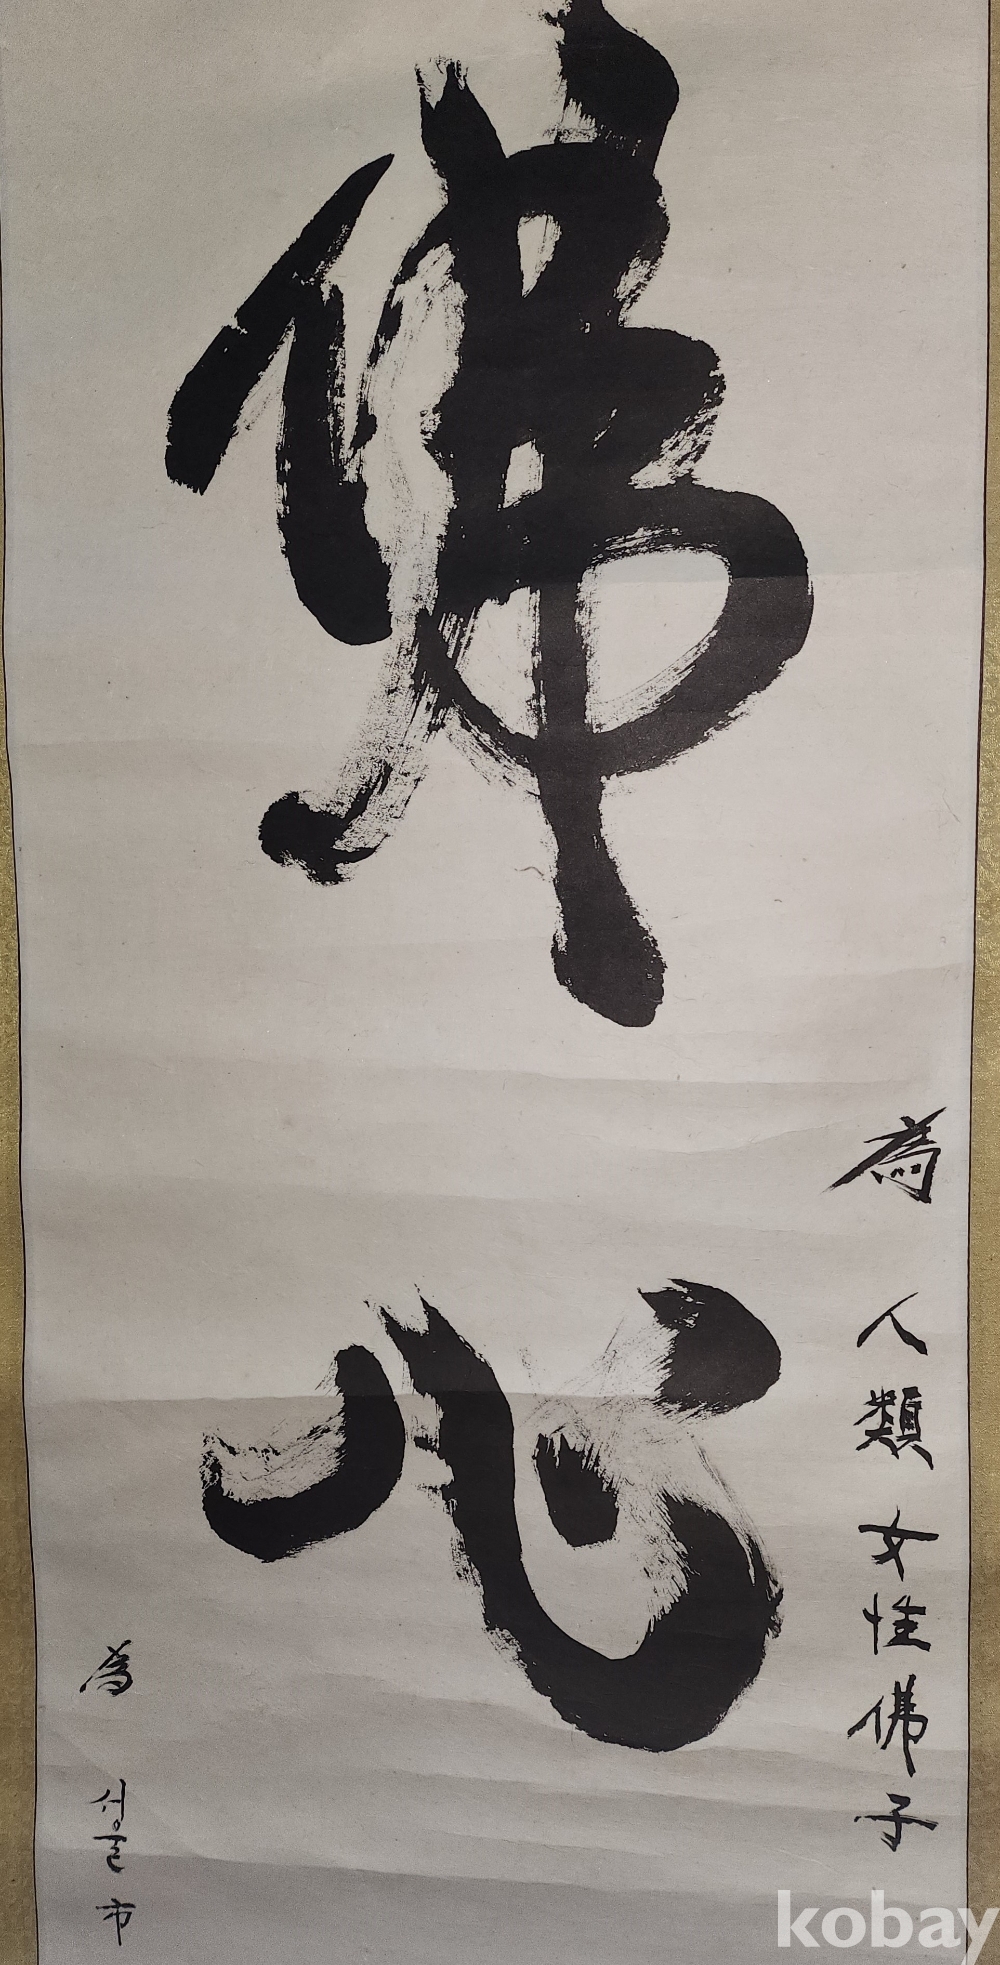 佛心
為 人類女性佛子
為 서울市
kobay